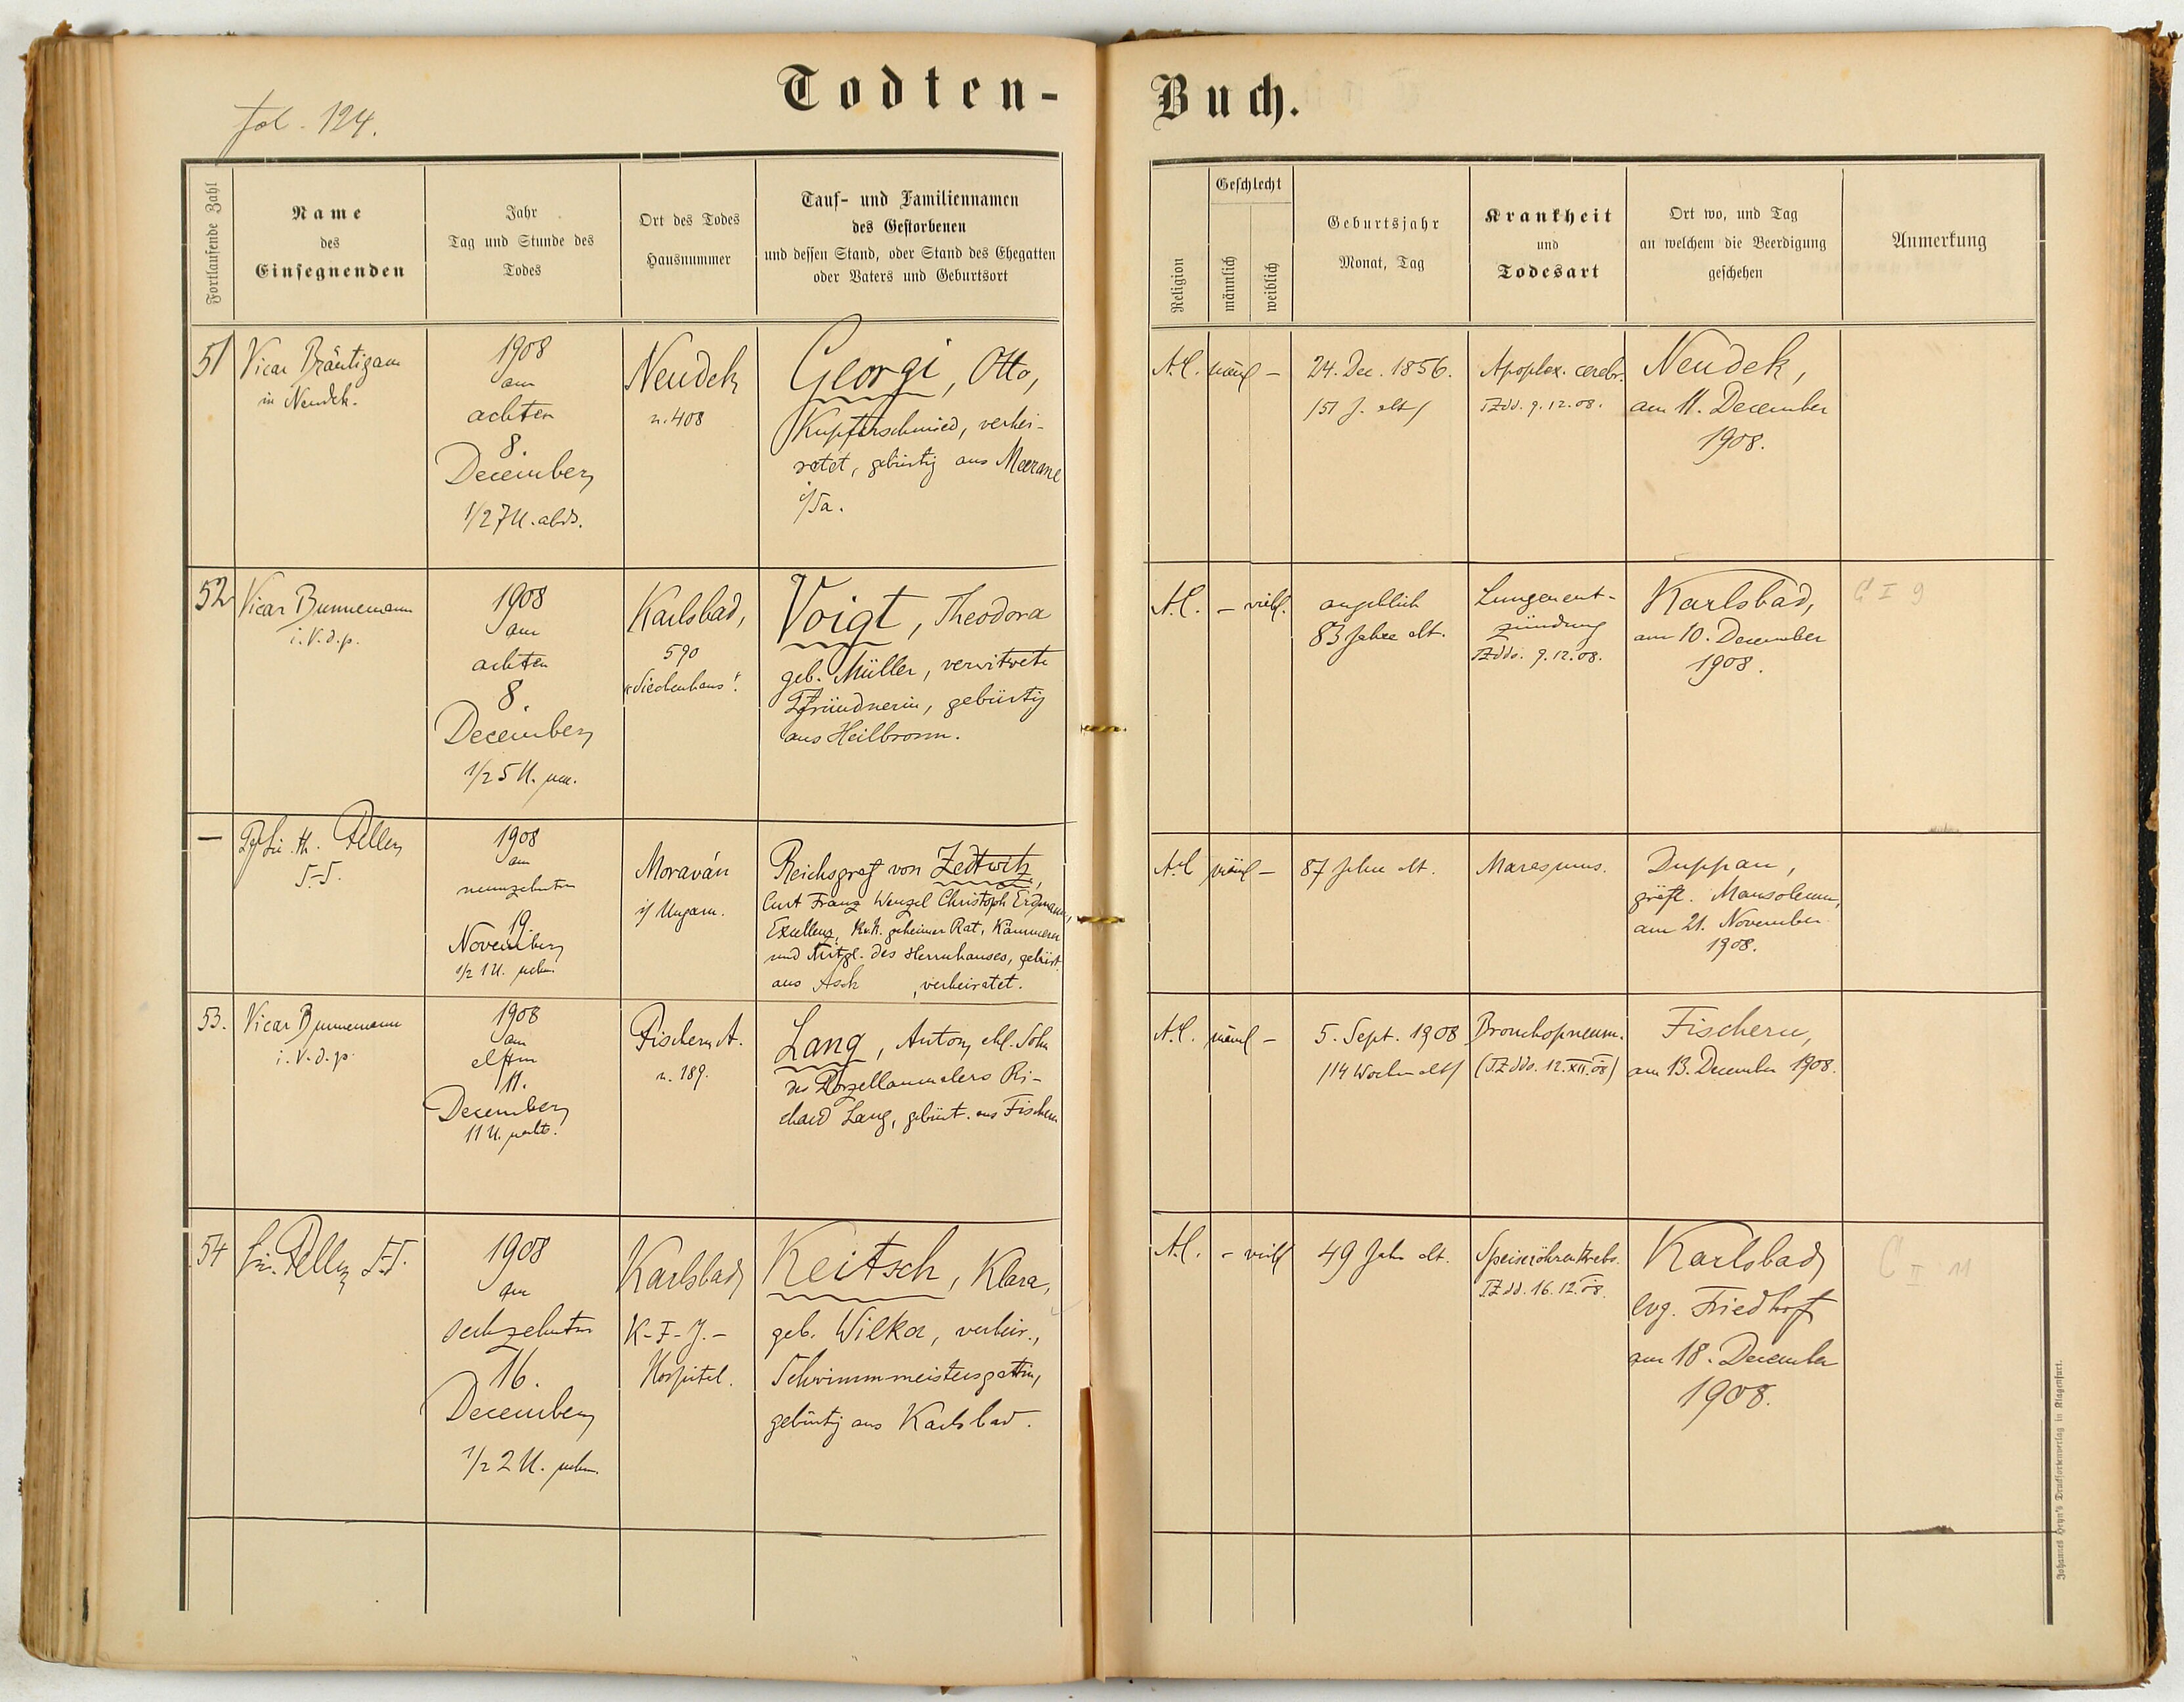 Todten-
Buch.
fol. 124.
Fortlaufende Zahl
Name
des
Einsegnenden
Jahr
Tag und Stunde des
Todes
Ort des Todes
Hausnummer
Tauf- und Familiennamen
des Gestorbenen
und dessen Stand, oder Stand des Ehegatten
oder Vaters und Geburtsort
Religion
Geschlecht
männlich
weiblich
Geburtsjahr
Monat, Tag
Krankheit
und
Todesart
Ort wo, und Tag
an welchem die Beerdigung
geschehen
Anmerkung
51
Vicar Bräutigam
in Neudek.
1908
am
achten
8.
December
1/2 7 U. abds.
Neudek
n. 408
Georgi, Otto,
Kupferschmied, verhei-
ratet, gebürtig aus Meerane
i/Sa.
A.C.
männl
-
24. Dec. 1856.
/51 J. alt/
Apoplex. cerebr.
TZdd. 9.12.08.
Neudek,
am 11. December
1908.
52
Vicar Bunnemann
i.V.d.p.
1908
am
achten
8.
December
1/2 5 U. nm.
Karlsbad,
590
"Siechenhaus".
Voigt, Theodora
geb. Müller, verwitwete
Pfründnerin, gebürtig
aus Heilbronn.
A.C.
-
weibl.
angeblich
83 Jahre alt.
Lungenent-
zündung
TZddo. 9.12.08.
Karlsbad,
am 10. December
1908.
C I 9
-
Pf. Lic. th.
S.-S.
1908
am
neunzehnten
19.
November
1/2 1 U. nchm.
Moraván
i/ Ungarn.
Reichsgraf von Zedtwitz,
Curt Franz Wenzel Christoph Erdmann,
Exellenz, K.u.K. geheimer Rat, Kämmerer
und Mitgl. des Herrnhauses, gebürt.
aus Asch, verheiratet.
A.C
männl
-
87 Jahre alt.
Marasmus.
Duppau,
gräfl. Mausoleum,
am 21. November
1908.
53.
Vicar Bunnemann
i.V.d.p.
1908
am
elften
11.
December
11 U. nachts.
Fischern A.
n. 189.
Lang, Anton, ehl. Sohn
des Porzellanmalers Ri-
chard Lang, gebürt. aus Fischern
A.C.
männl
-
5. Sept. 1908
/14 Wochen alt/
Bronchopneum.
(TZddo. 12.XII.08)
Fischern,
am 13. December 1908.
54
Lic.
S.S.
1908
am
sechzehnten
16.
December
1/2 2 U. nchm.
Karlsbad
K-F-J.-
Hospital.
Keitsch, Klara,
geb. Wilka, verheir.,
Schwimmmeistersgattin,
gebürtig aus Karlsbad.
A.C.
-
weibl
49 Jahre alt.
Speiseröhrenkrebs.
TZdd. 16.12.08.
Karlsbad
evg. Friedhof
am 18. December
1908.
C II 11
Johannes Heyn's Drucksortenverlag in Klagenfurt.